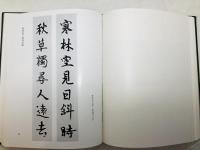 寒林空見日斜時
秋草獨尋人遠去